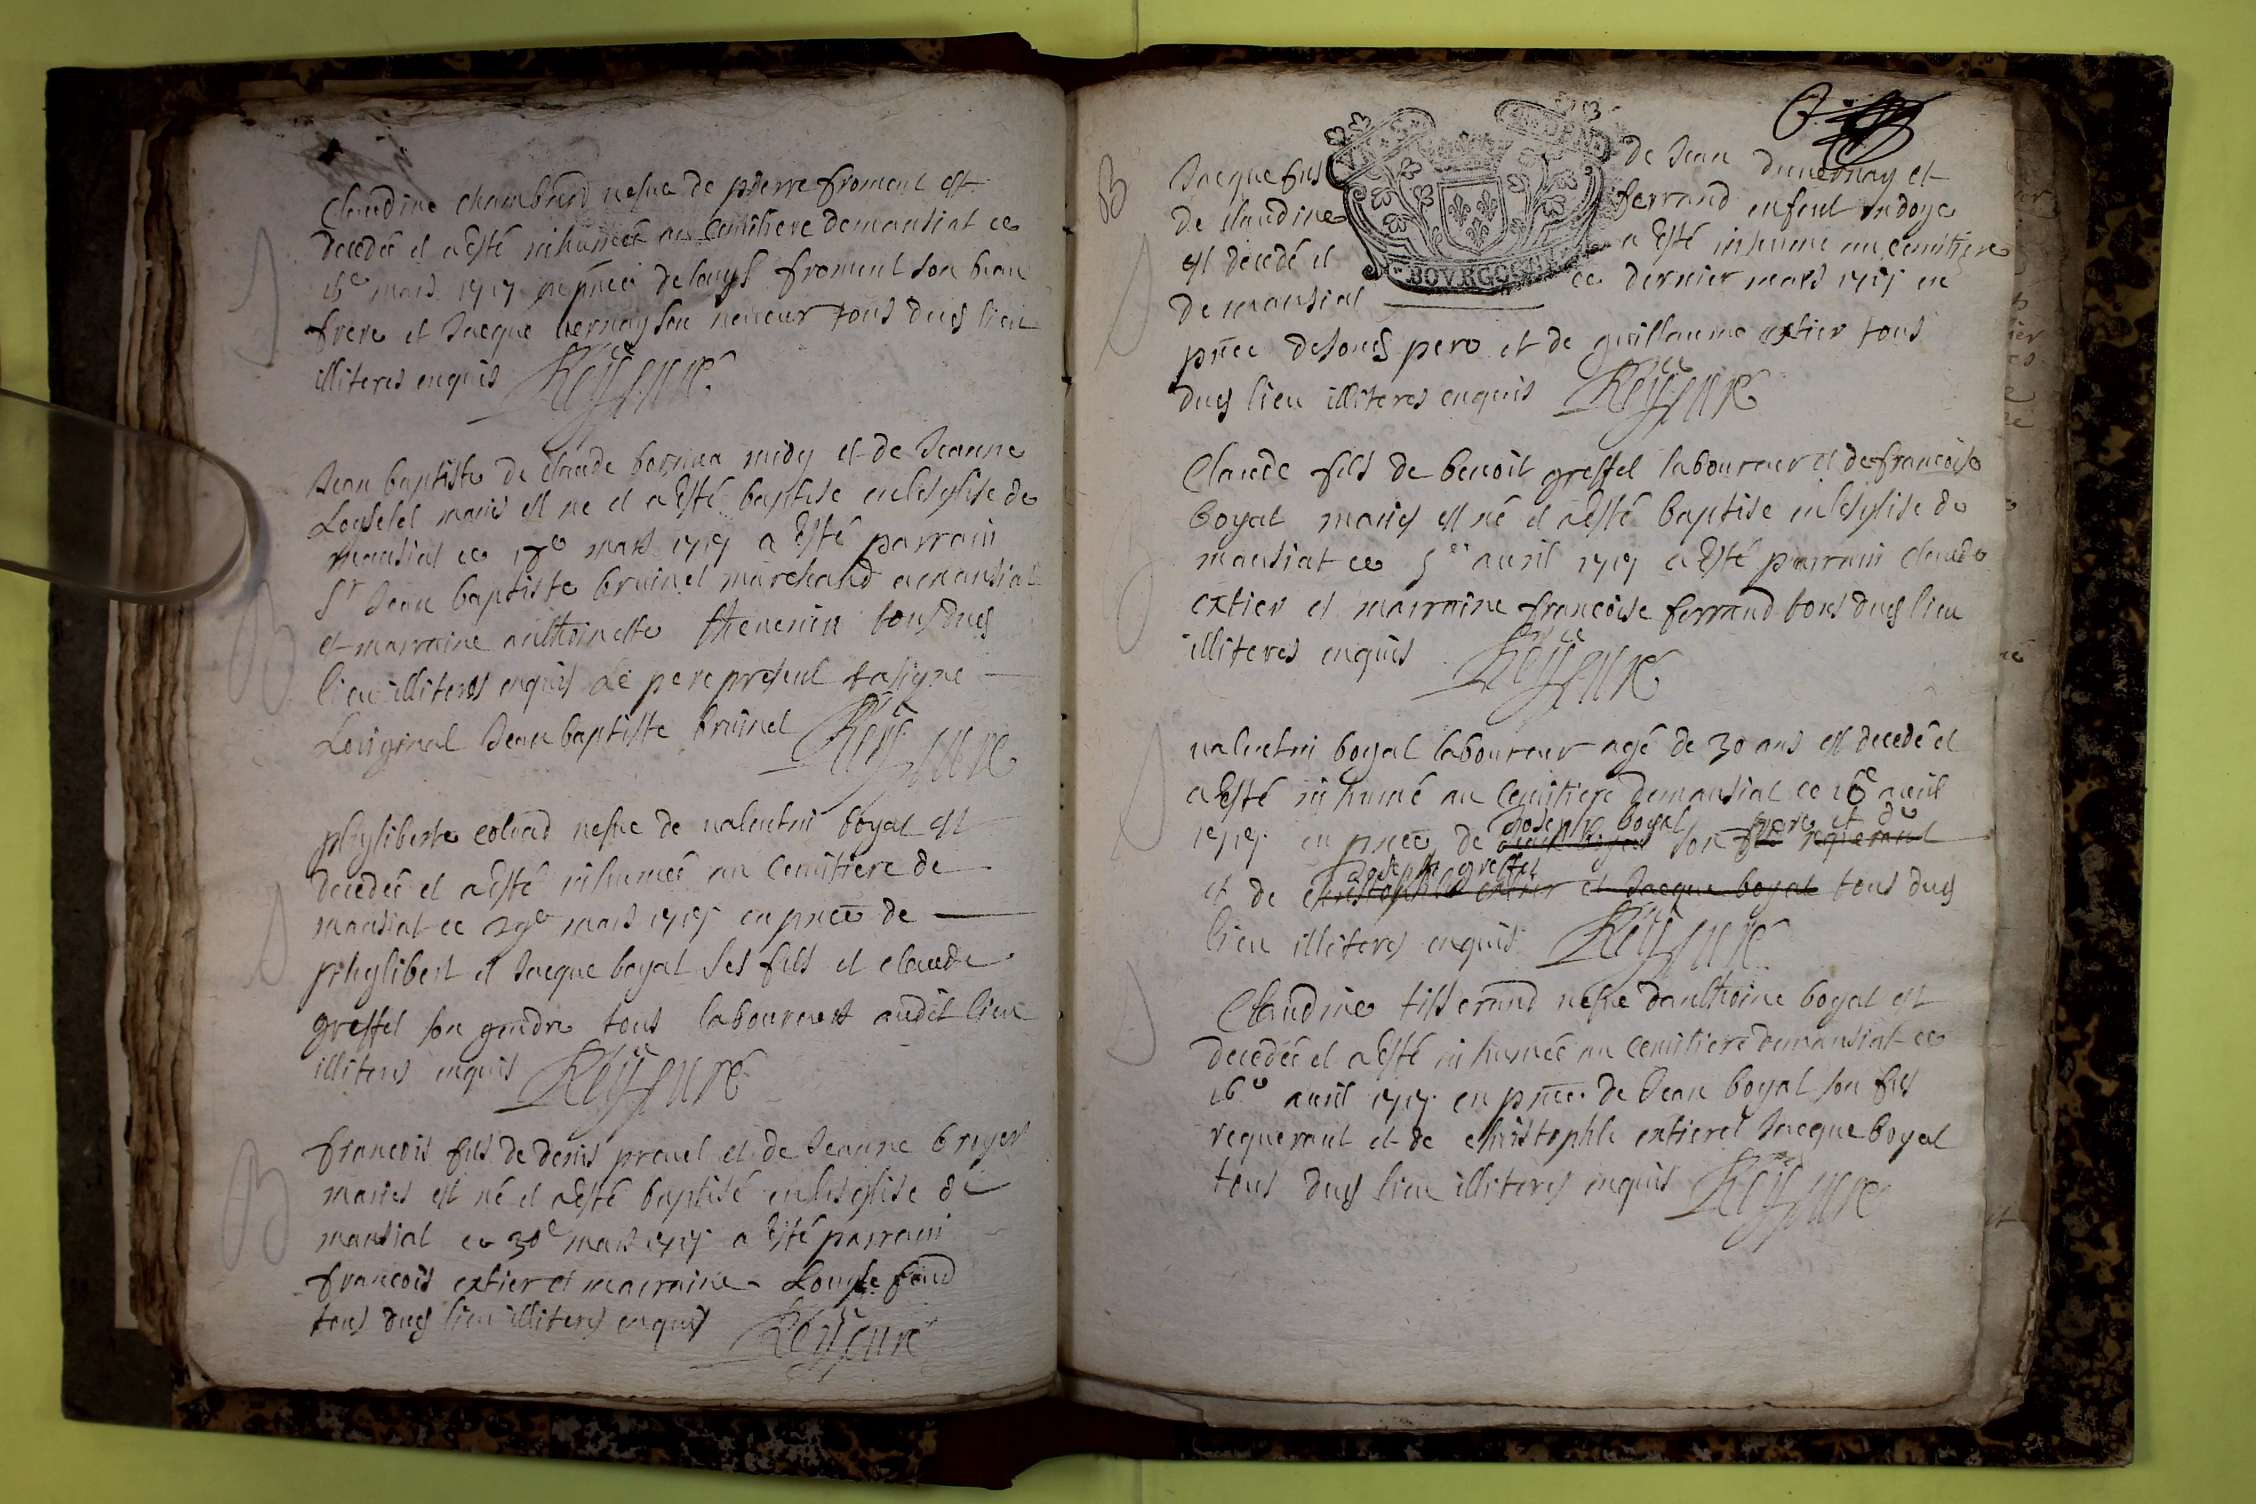 Claudine chambard vefve de pierre froment est
decedée et a esté inhumée au cemitiere de mansiat ce
16e mars 1717 en pñce de louys froment son beau
frere et Jacque vernay son neveur tous dud lieu
illiteres enquis Reyssure
Jean baptiste de claude borjon midy et de Jeanne
Loyselel mariés est né et a esté baptise en lesglise de
mansiat ce 17e mars 1717 a esté parrain
Sr Jean baptiste bruinel marchand a mansiat
et marraine anthoinette thevenin tous dud
lieu illiteres enquis le pere present a signe
Loriginal Jean baptiste bruinel Reyssure
phyliberte colard vefve de valentin boyat est
decedée et a esté inhumée au cemitiere de
mansiat ce 29e mars 1717 en pñce de
phylibert et Jacque boyat ses fils et claude
greffet son gendre tous laboureurs audit lieu
illiteres enquis Reyssure
francois fils de denis preuel et de Jeanne broyer
mariés est né et a esté baptisé en lesglise de
mansiat ce 30e mars 1717 a esté parrain
francois extier et marraine Louyse feaud
tous dud lieu illiteres enquis Reyssure
B Jacque fils de Jean duvernay et
de claudine ferrand enfent ondoye
est decedé et a esté inhumé au cemitiere
de mansiat ce dernier mars 1717 en
BOVRGOGNE
pñce desond pere et de guillaume extier tous
dud lieu illiteres enquis Reyssure
Claude fils de benoit greffet laboureur et de francoise
boyat mariés est né et a esté baptise en lesglise de
mansiat ce 5e avril 1717 a esté parrain claude
extier et marraine francoise ferrand tous dud lieu
illiteres enquis Reyssure
valentin boyat laboureur agé de 30 ans est decedé et
a esté inhumé au cemitiere de mansiat ce 16e avril
1717 en pñce de Joseph boyat son frere et de
Joseph greffet
et de christophle extier et Jacque boyat tous dud
lieu illiteres enquis Reyssure
Claudine tisserand vefve danthoine boyat est
decedée et a esté inhumée au cemitiere de mansiat ce
16e avril 1717 en pñce de Jean boyat son fils
requerant et de christophle extier et Jacque boyat
tous dud lieu illiteres enquis Reyssure